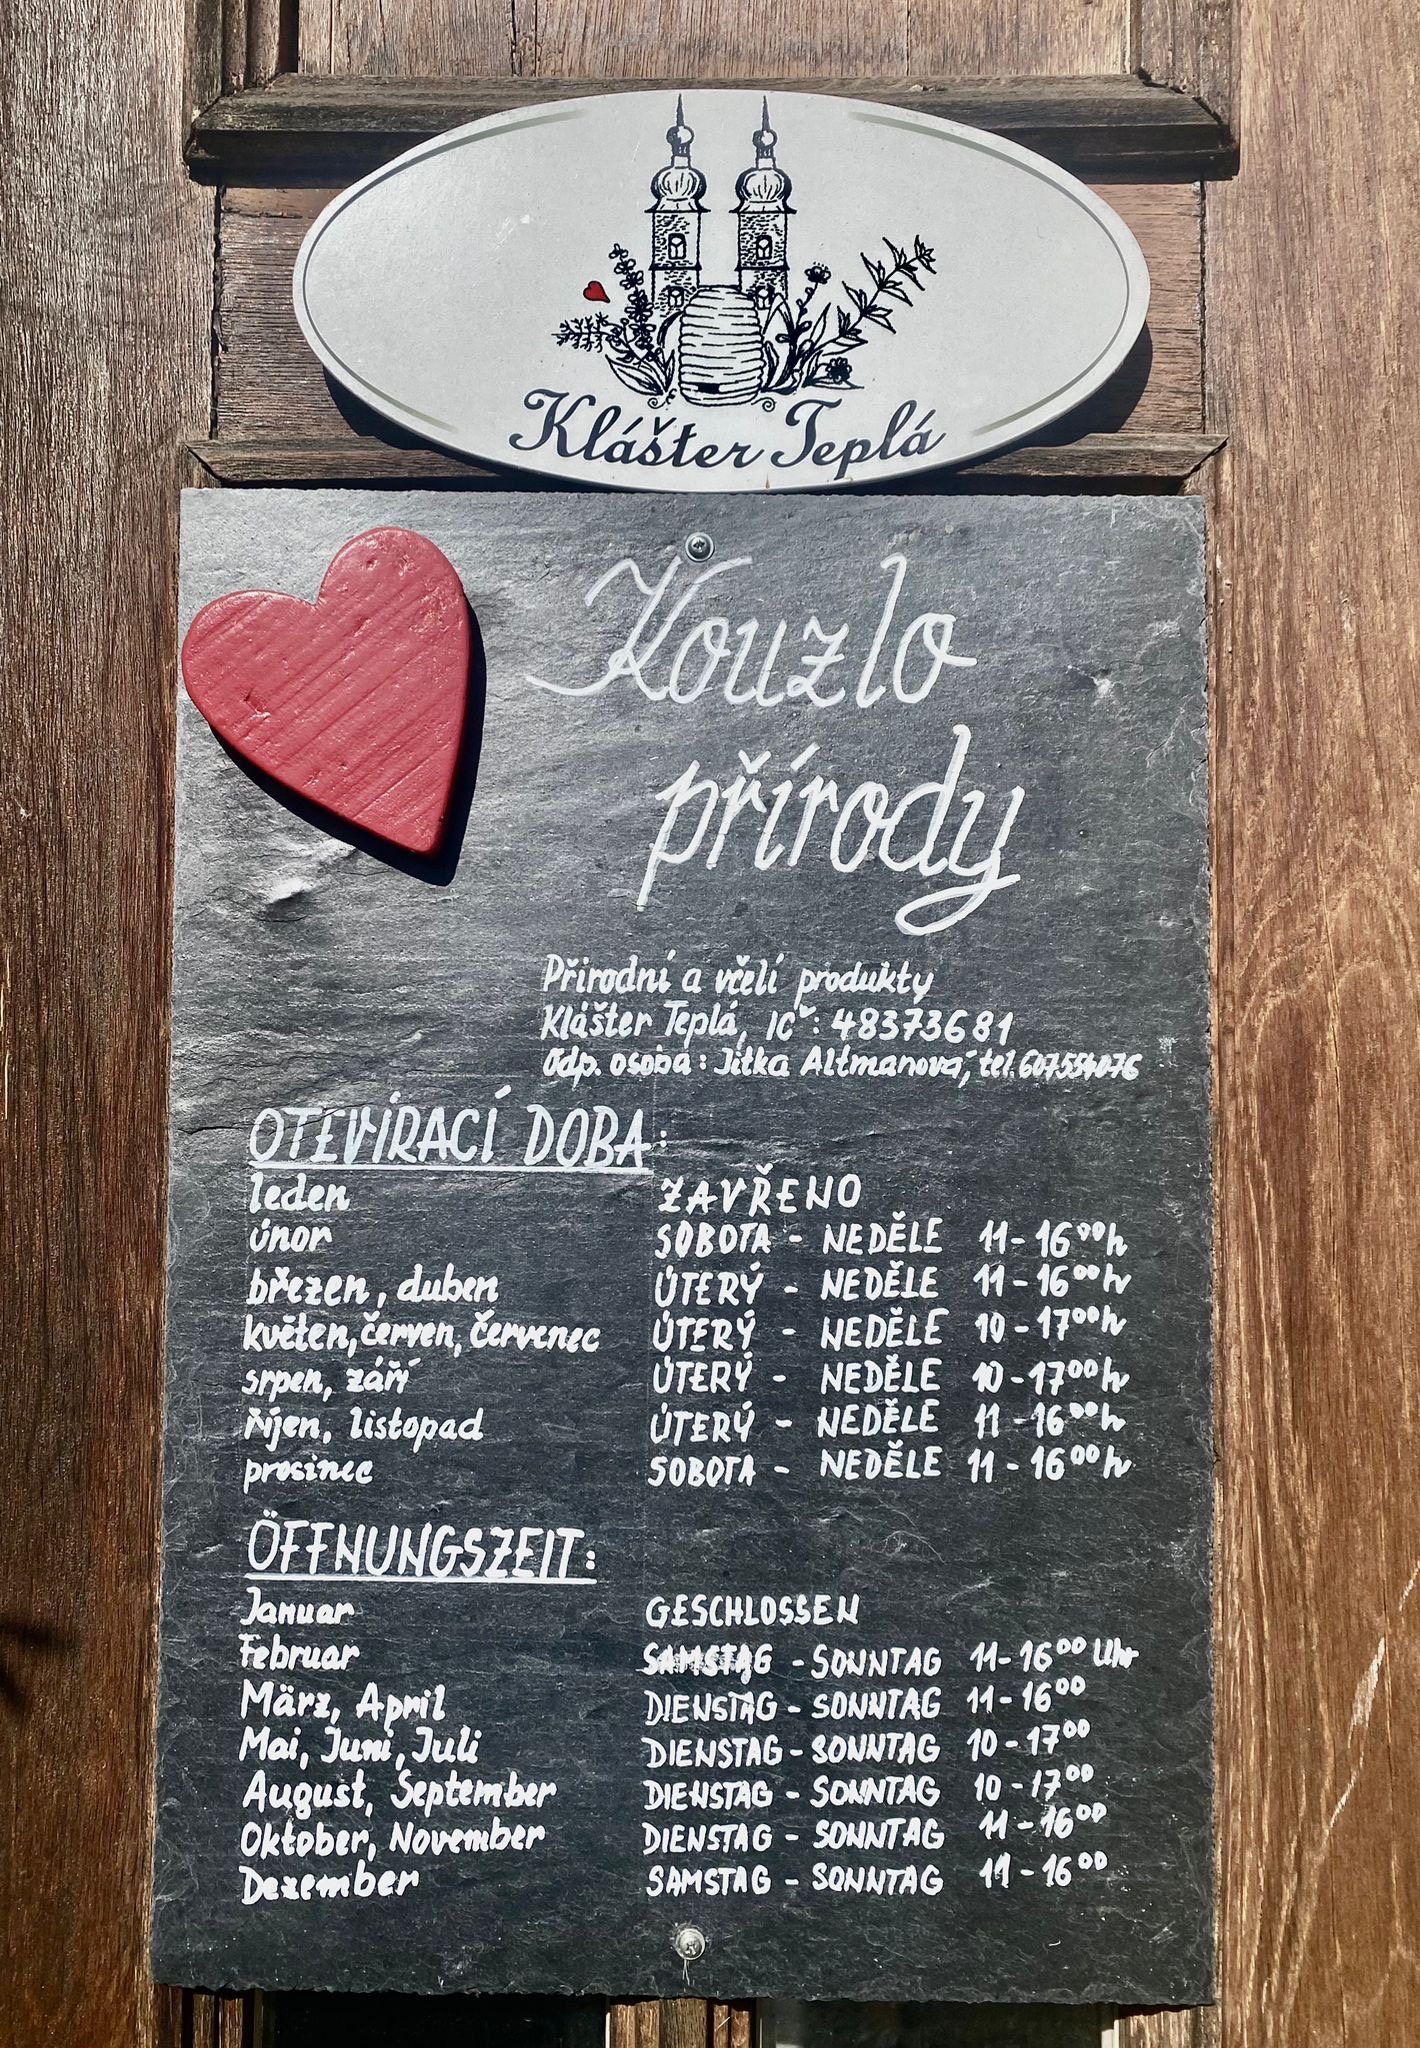 Klášter Teplá
Kouzlo
přírody
Přírodní a včelí produkty
Klášter Teplá, IČ: 48373681
Odp. osoba: Jitka Altmanová, tel. 607554076
OTEVÍRACÍ DOBA:
leden ZAVŘENO
únor SOBOTA - NEDĚLE 11-16⁰⁰h
březen, duben ÚTERÝ - NEDĚLE 11-16⁰⁰h
květen, červen, červenec ÚTERÝ - NEDĚLE 10-17⁰⁰h
srpen, září ÚTERÝ - NEDĚLE 10-17⁰⁰h
říjen, listopad ÚTERÝ - NEDĚLE 11-16⁰⁰h
prosinec SOBOTA - NEDĚLE 11-16⁰⁰h
ÖFFNUNGSZEIT:
Januar GESCHLOSSEN
Februar SAMSTAG - SONNTAG 11-16⁰⁰ Uhr
März, April DIENSTAG - SONNTAG 11-16⁰⁰
Mai, Juni, Juli DIENSTAG - SONNTAG 10-17⁰⁰
August, September DIENSTAG - SONNTAG 10-17⁰⁰
Oktober, November DIENSTAG - SONNTAG 11-16⁰⁰
Dezember SAMSTAG - SONNTAG 11-16⁰⁰